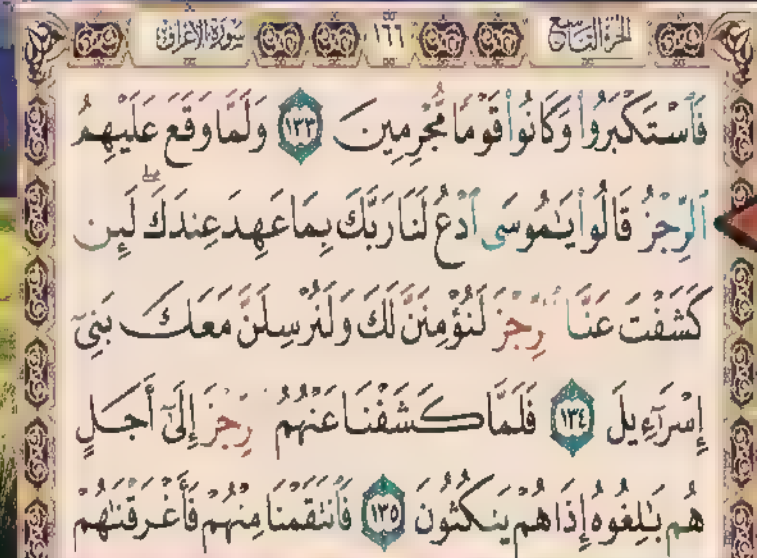 سورة الأعراف ١٦٦ الجزء التاسع
فَٱسۡتَكۡبَرُواْ وَكَانُواْ قَوۡمٗا مُّجۡرِمِينَ ١٣٣ وَلَمَّا وَقَعَ عَلَيۡهِمُ
ٱلرِّجۡزُ قَالُواْ يَٰمُوسَى ٱدۡعُ لَنَا رَبَّكَ بِمَا عَهِدَ عِندَكَۖ لَئِن
كَشَفۡتَ عَنَّا ٱلرِّجۡزَ لَنُؤۡمِنَنَّ لَكَ وَلَنُرۡسِلَنَّ مَعَكَ بَنِيٓ
إِسۡرَٰٓءِيلَ ١٣٤ فَلَمَّا كَشَفۡنَا عَنۡهُمُ ٱلرِّجۡزَ إِلَىٰٓ أَجَلٍ
هُم بَٰلِغُوهُ إِذَا هُمۡ يَنكُثُونَ ١٣٥ فَٱنتَقَمۡنَا مِنۡهُمۡ فَأَغۡرَقۡنَٰهُمۡ